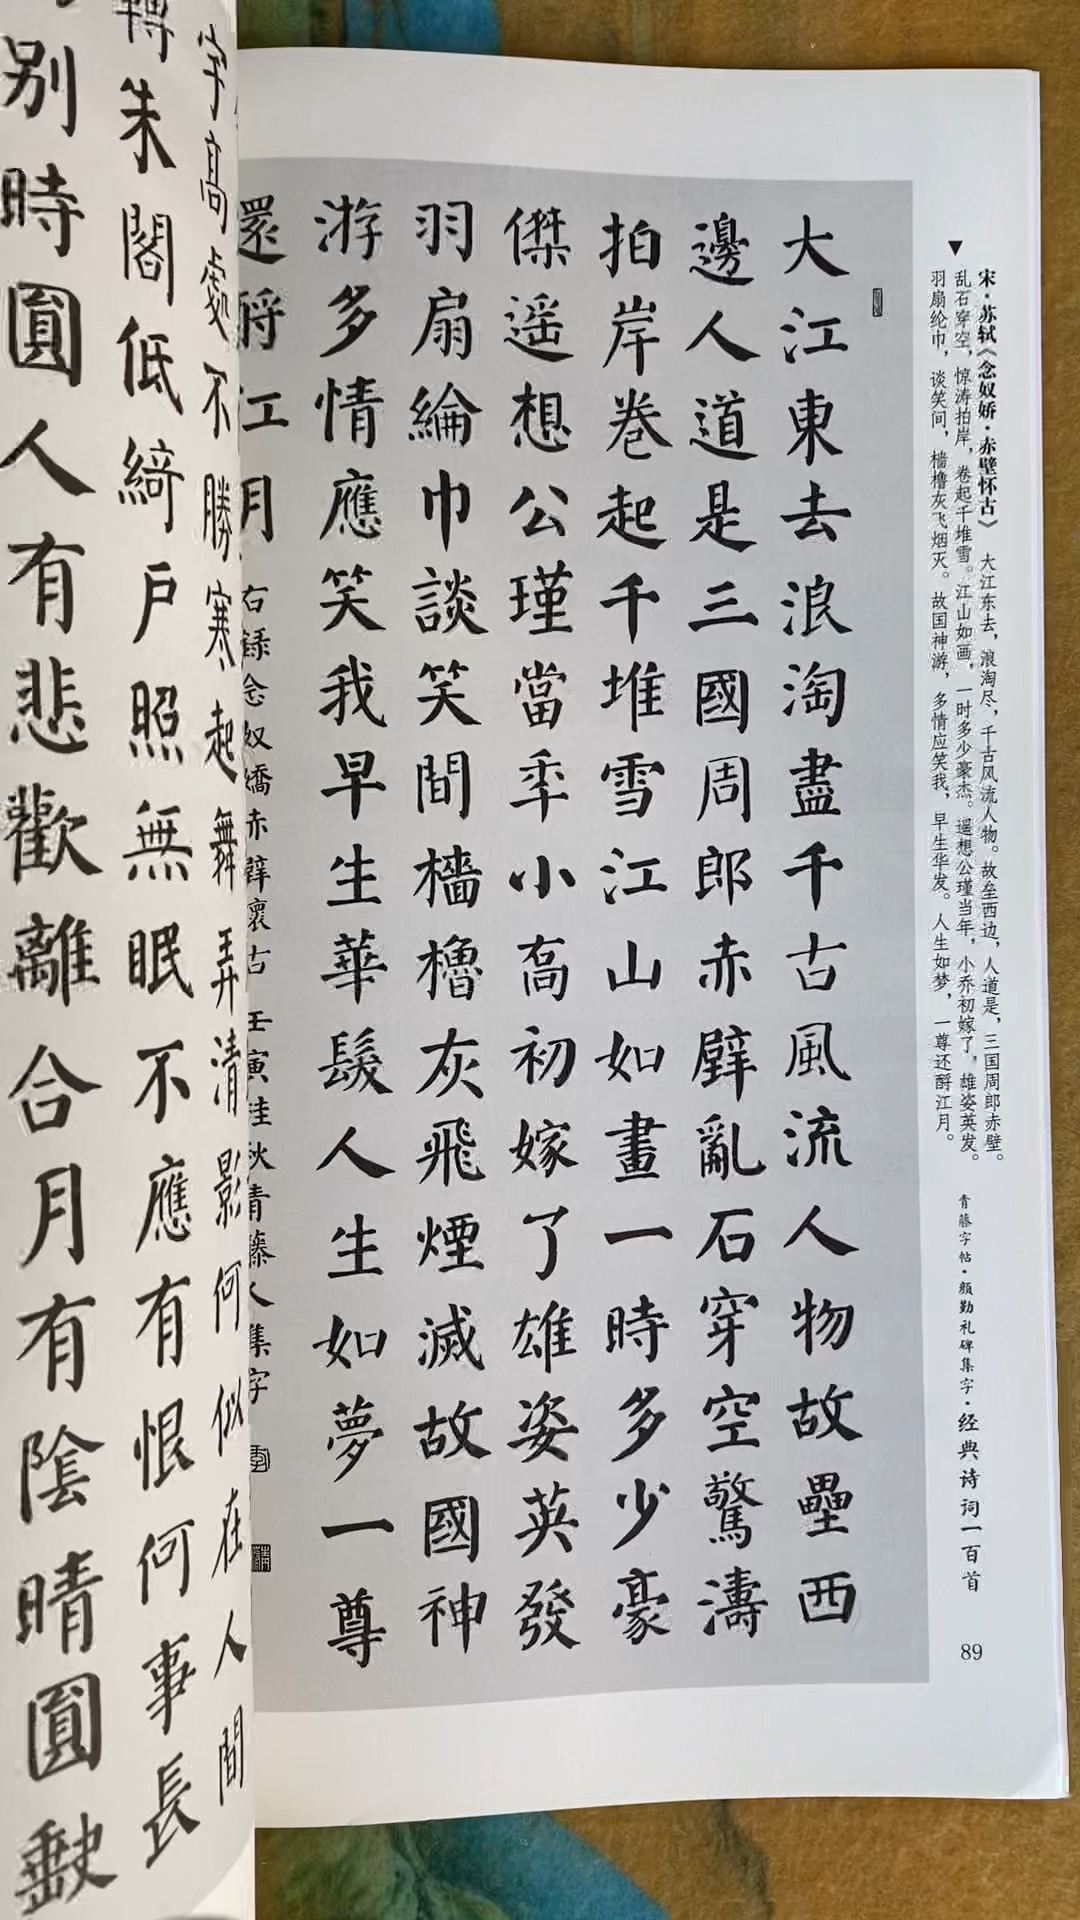 宋·苏轼《念奴娇·赤壁怀古》 大江东去，浪淘尽，千古风流人物。故垒西边，人道是，三国周郎赤壁。
乱石穿空，惊涛拍岸，卷起千堆雪。江山如画，一时多少豪杰。遥想公瑾当年，小乔初嫁了，雄姿英发。
羽扇纶巾，谈笑间，樯橹灰飞烟灭。故国神游，多情应笑我，早生华发。人生如梦，一尊还酹江月。
青藤字帖·颜勤礼碑集字·经典诗词一百首
89
大江東去浪淘盡千古風流人物故壘西
邊人道是三國周郎赤壁亂石穿空驚濤
拍岸卷起千堆雪江山如畫一時多少豪
傑遥想公瑾當年小喬初嫁了雄姿英發
羽扇綸巾談笑間檣櫓灰飛煙滅故國神
游多情應笑我早生華髮人生如夢一尊
還酹江月
右録念奴嬌赤壁懷古 壬寅桂秋青藤人集字
宇高處不勝寒起舞弄清影何似在人間
轉朱閣低綺户照無眠不應有恨何事長
别時圓人有悲歡離合月有陰晴圓缺